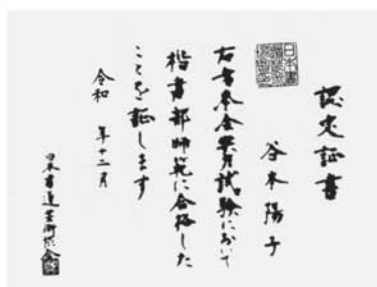 認定証書
谷本陽子
右者本会昇段試験において
楷書部師範に合格した
ことを証します
令和 年十二月
日本書道芸術協会